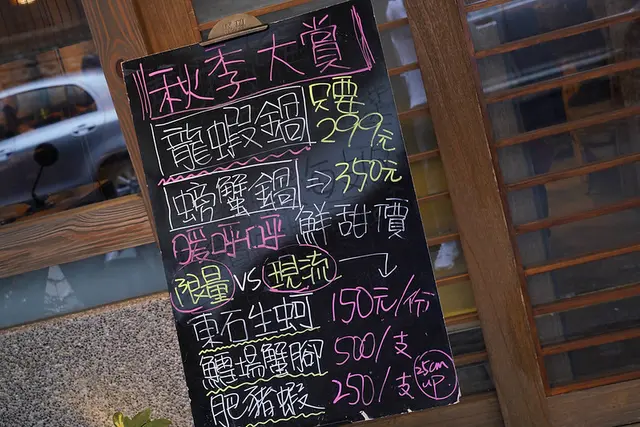 秋季大賞
龍蝦鍋 只要299元
螃蟹鍋 ⇒350元
暖呼呼 鮮甜價
限量 VS 現流
東石生蚵 150元/份
鱈場蟹腳 500/支
肥豬蝦 250/支 25cm UP